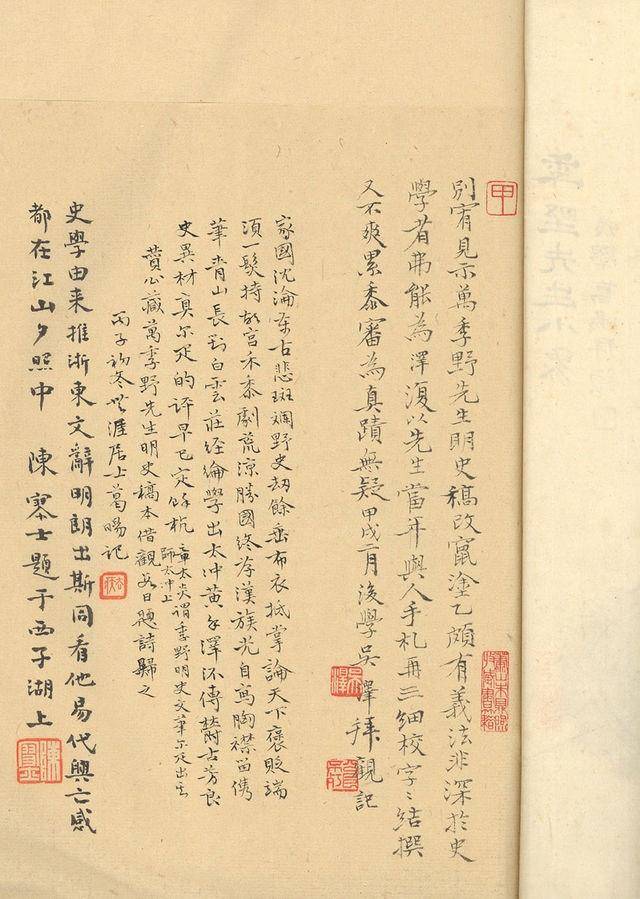 別宥見示萬季野先生明史稿改竄塗乙頗有義法非深於史
學者弗能為澤復以先生當年與人手札再三細校字〻結撰
又不爽累黍審為真蹟無疑甲戌二月後學吳澤拜觀記
家國沈淪萬古悲斑斕野史劫餘垂布衣抵掌論天下褒貶端
須一髮持故宮禾黍劇荒涼勝國終存漢族光自寫胸襟留儁
筆青山長對白雲莊經綸學出太沖黃
史異材真
的評早已定餘杭
章太炎謂季野明史文筆
師太沖上
藏萬季野先生明史稿本借觀
日題詩歸之
丙子初冬
涯居士葛暘記
史學由来推浙東文辭明朗出斯同看他易代興亡感
都在江山夕照中 陳寥士題于西子湖上
甲